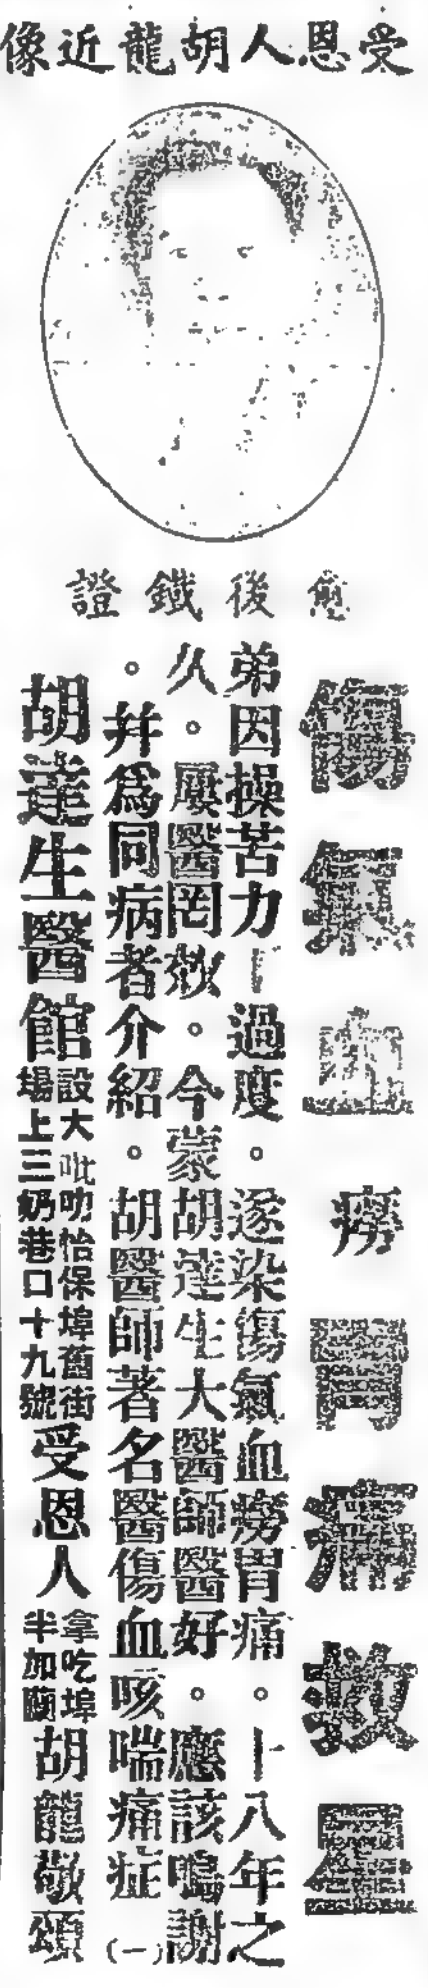 受恩人胡龍近像
愈後鐵證
傷氣血癆胃痛救星
弟因操苦力過度。逐染傷氣血癆胃痛。十八年之
久。屢醫罔效。今蒙胡達生大醫師醫好。應該鳴謝
。并為同病者介紹。胡醫師著名醫傷血咳喘痛症(一)
胡達生醫館
設大吡叻怡保埠舊街
場上三奶巷口十九號
受恩人
拿吃埠
半加蘭
胡龍敬頌